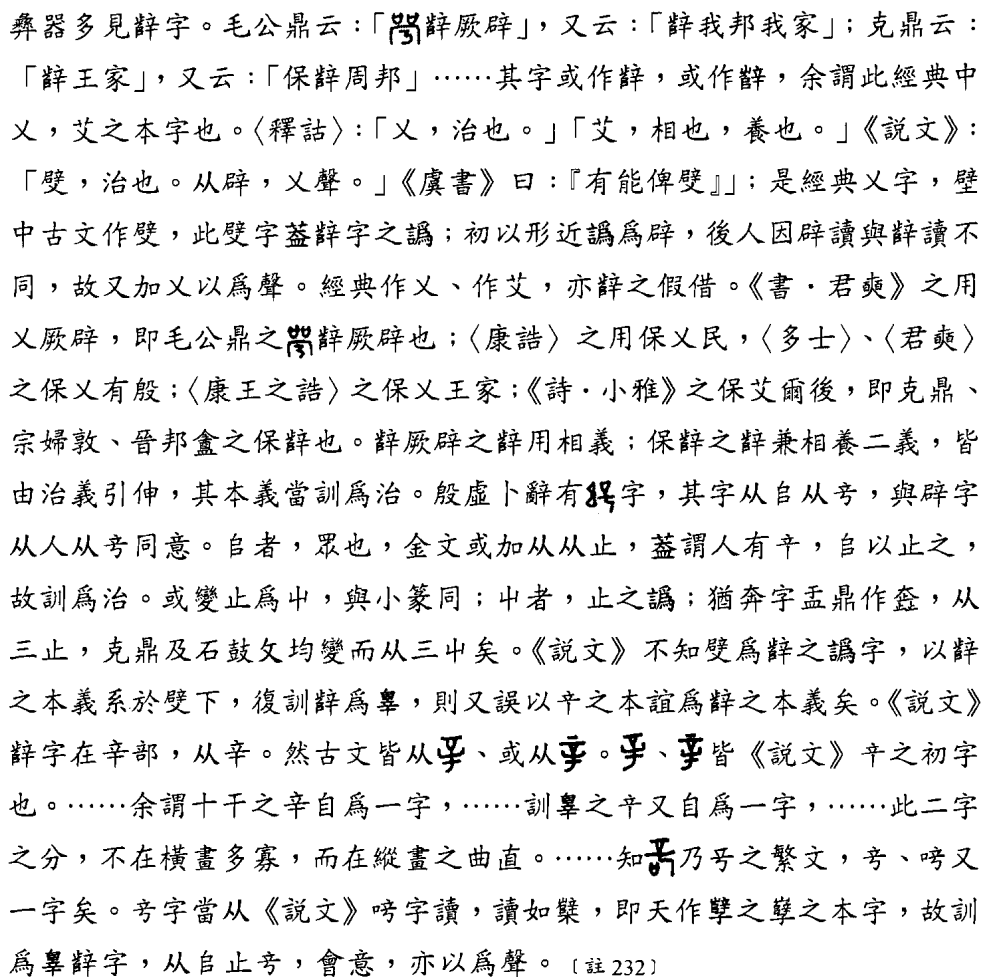 彝器多見辥字。毛公鼎云：「辥厥辟」，又云：「辥我邦我家」；克鼎云：
「辥王家」，又云：「保辥周邦」……其字或作辥，或作，余謂此經典中
乂，艾之本字也。〈釋詁〉：「乂，治也。」「艾，相也，養也。」《說文》：
「𨐨，治也。从辟，乂聲。」《虞書》曰：『有能俾𨐨』」；是經典乂字，壁
中古文作𨐨，此𨐨字葢辥字之譌；初以形近譌爲辟，後人因辟讀與辥讀不
同，故又加乂以爲聲。經典作乂、作艾，亦辥之假借。《書．君奭》之用
乂厥辟，即毛公鼎之辥厥辟也；〈康誥〉之用保乂民，〈多士〉、〈君奭〉
之保乂有殷；〈康王之誥〉之保乂王家；《詩．小雅》之保艾爾後，即克鼎、
宗婦敦、晉邦盦之保辥也。辥厥辟之辥用相義；保辥之辥兼相養二義，皆
由治義引伸，其本義當訓爲治。殷虛卜辭有字，其字从𠂤从䇂，與辟字
从人从䇂同意。𠂤者，眾也，金文或加从从止，葢謂人有䇂，𠂤以止之，
故訓爲治。或變止爲屮，與小篆同；屮者，止之譌；猶奔字盂鼎作，从
三止，克鼎及石鼓文均變而从三屮矣。《說文》不知𨐨爲辥之譌字，以辥
之本義系於𨐨下，復訓辥爲辠，則又誤以䇂之本誼爲辥之本義矣。《說文》
辥字在辛部，从辛。然古文皆从、或从。、皆《說文》䇂之初字
也。……余謂十干之辛自爲一字，……訓辠之䇂又自爲一字，……此二字
之分，不在橫畫多寡，而在縱畫之曲直。……知乃䇂之繁文，䇂、㖕又
一字矣。䇂字當从《說文》㖕字讀，讀如櫱，即天作孼之孼之本字，故訓
爲辠辥字，从𠂤止䇂，會意，亦以爲聲。〔註232〕